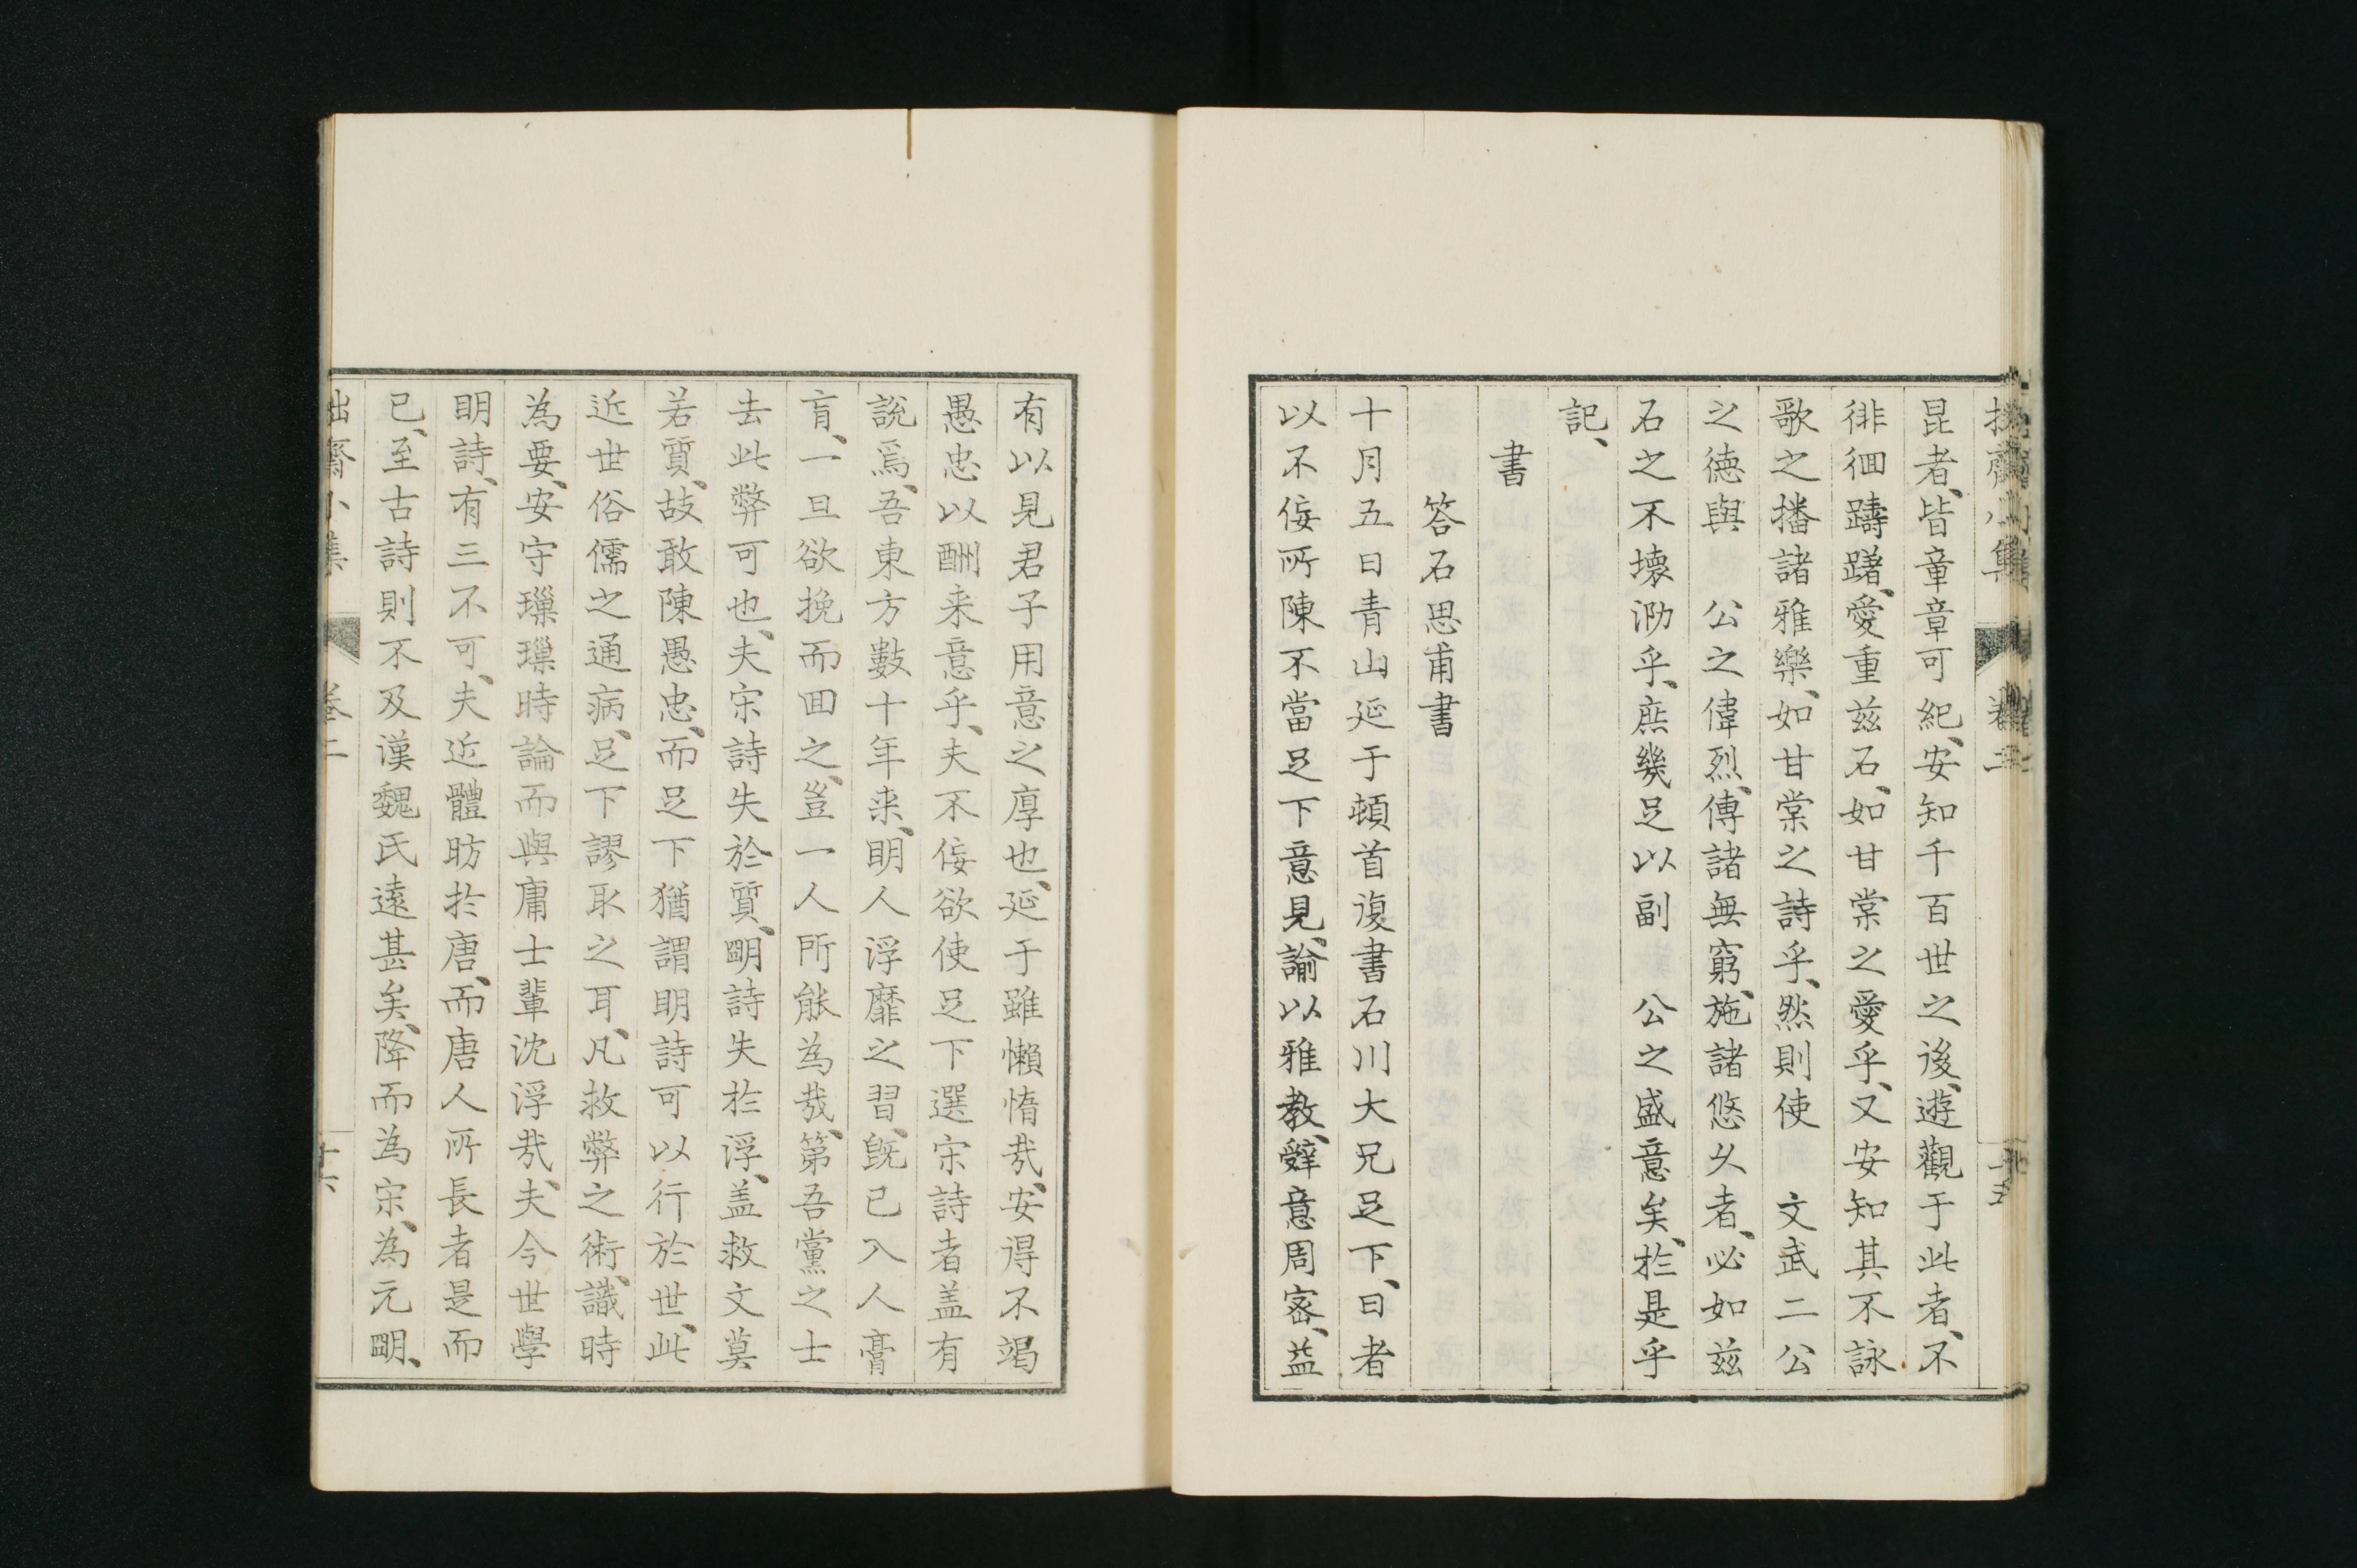 昆者、皆章章可紀、安知千百世之後、遊觀于此者、不
徘徊躊躇、愛重茲石、如甘棠之愛乎、又安知其不詠
歌之播諸雅樂、如甘棠之詩乎、然則使　文武二公
之德與　公之偉烈、傳諸無窮、施諸悠久者、必如茲
石之不壞泐乎、庶幾足以副　公之盛意矣、於是乎
記、
書
答石思甫書
十月五日青山延于頓首復書石川大兄足下、日者
以不佞所陳不當足下意見、諭以雅教、辭意周密、益
有以見君子用意之厚也、延于雖懶惰哉、安得不竭
愚忠以酬来意乎、夫不佞欲使足下選宋詩者蓋有
說焉、吾東方數十年来、明人浮靡之習、既已入人膏
肓、一旦欲挽而回之、豈一人所能為哉、第吾黨之士
去此弊可也、夫宋詩失於質、明詩失於浮、蓋救文莫
若質、故敢陳愚忠、而足下猶謂明詩可以行於世、此
近世俗儒之通病、足下謬取之耳、凡救弊之術、識時
為要、安守璅璅時論而與庸士輩沈浮哉、夫今世學
明詩、有三不可、夫近體昉於唐、而唐人所長者是而
已、至古詩則不及漢魏氏遠甚矣、降而為宋、為元明、
拙齋小集　卷二　十六